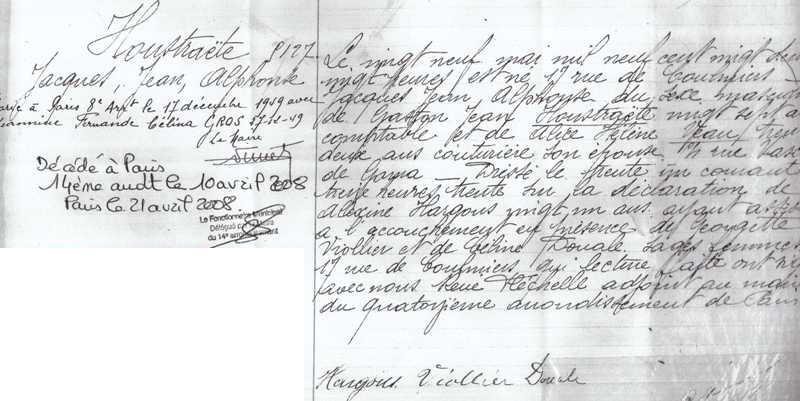 Houstraëte P127
Jacques, Jean, Alphonse
Marié à Paris 8e Arrt le 17 décembre 1949 avec
Jeannine Fernande Célina GROS 27-12-49
Le Maire
Décédé à Paris
14ème arrdt le 10 avril 2008
Paris le 21 avril 2008.
Le Fonctionnaire Municipal
Délégué
du 14e arrondissement
Le vingt neuf mai mil neuf cent vingt
vingt heures est né 17 rue de Coulmiers
Jacques Jean Alphonse du sexe masculin
de Gaston Jean Houstraëte vingt sept a
comptable et de Alice Hélène Jeau tren
deux ans couturière son épouse rue Vasco
de Gama Dressé le trente un courant
treize heures trente sur la déclaration de
Alexine Hargous vingt un ans ayant assisté
à l'accouchement en présence de Georgette
Viollier et de Céline Douale sages femmes
17 rue de Coulmiers qui lecture faite ont signé
avec nous René Héchelle adjoint au maire
du quatorzième arrondissement de Paris
Hargous Viollier Douale